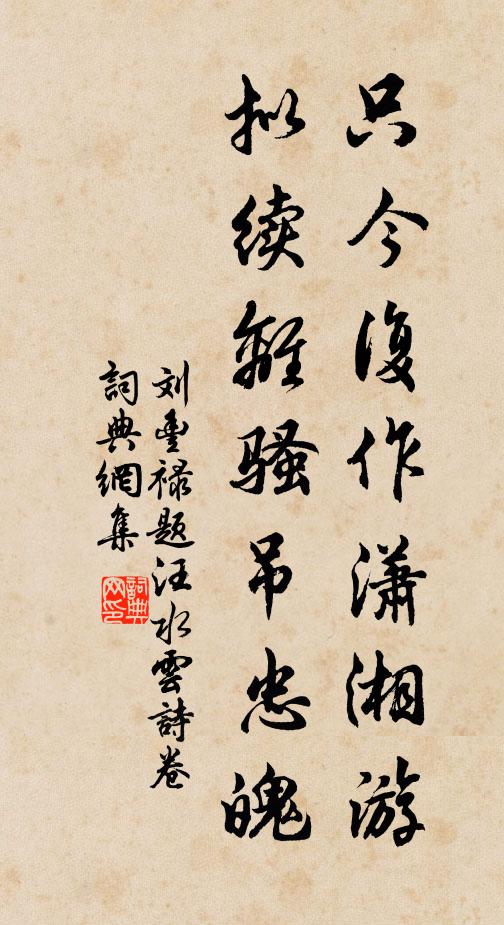 只今復作潇湘游
拟续離骚吊忠魄
刘豊禄题汪水雲詩卷
詞典網集
詞典
网印